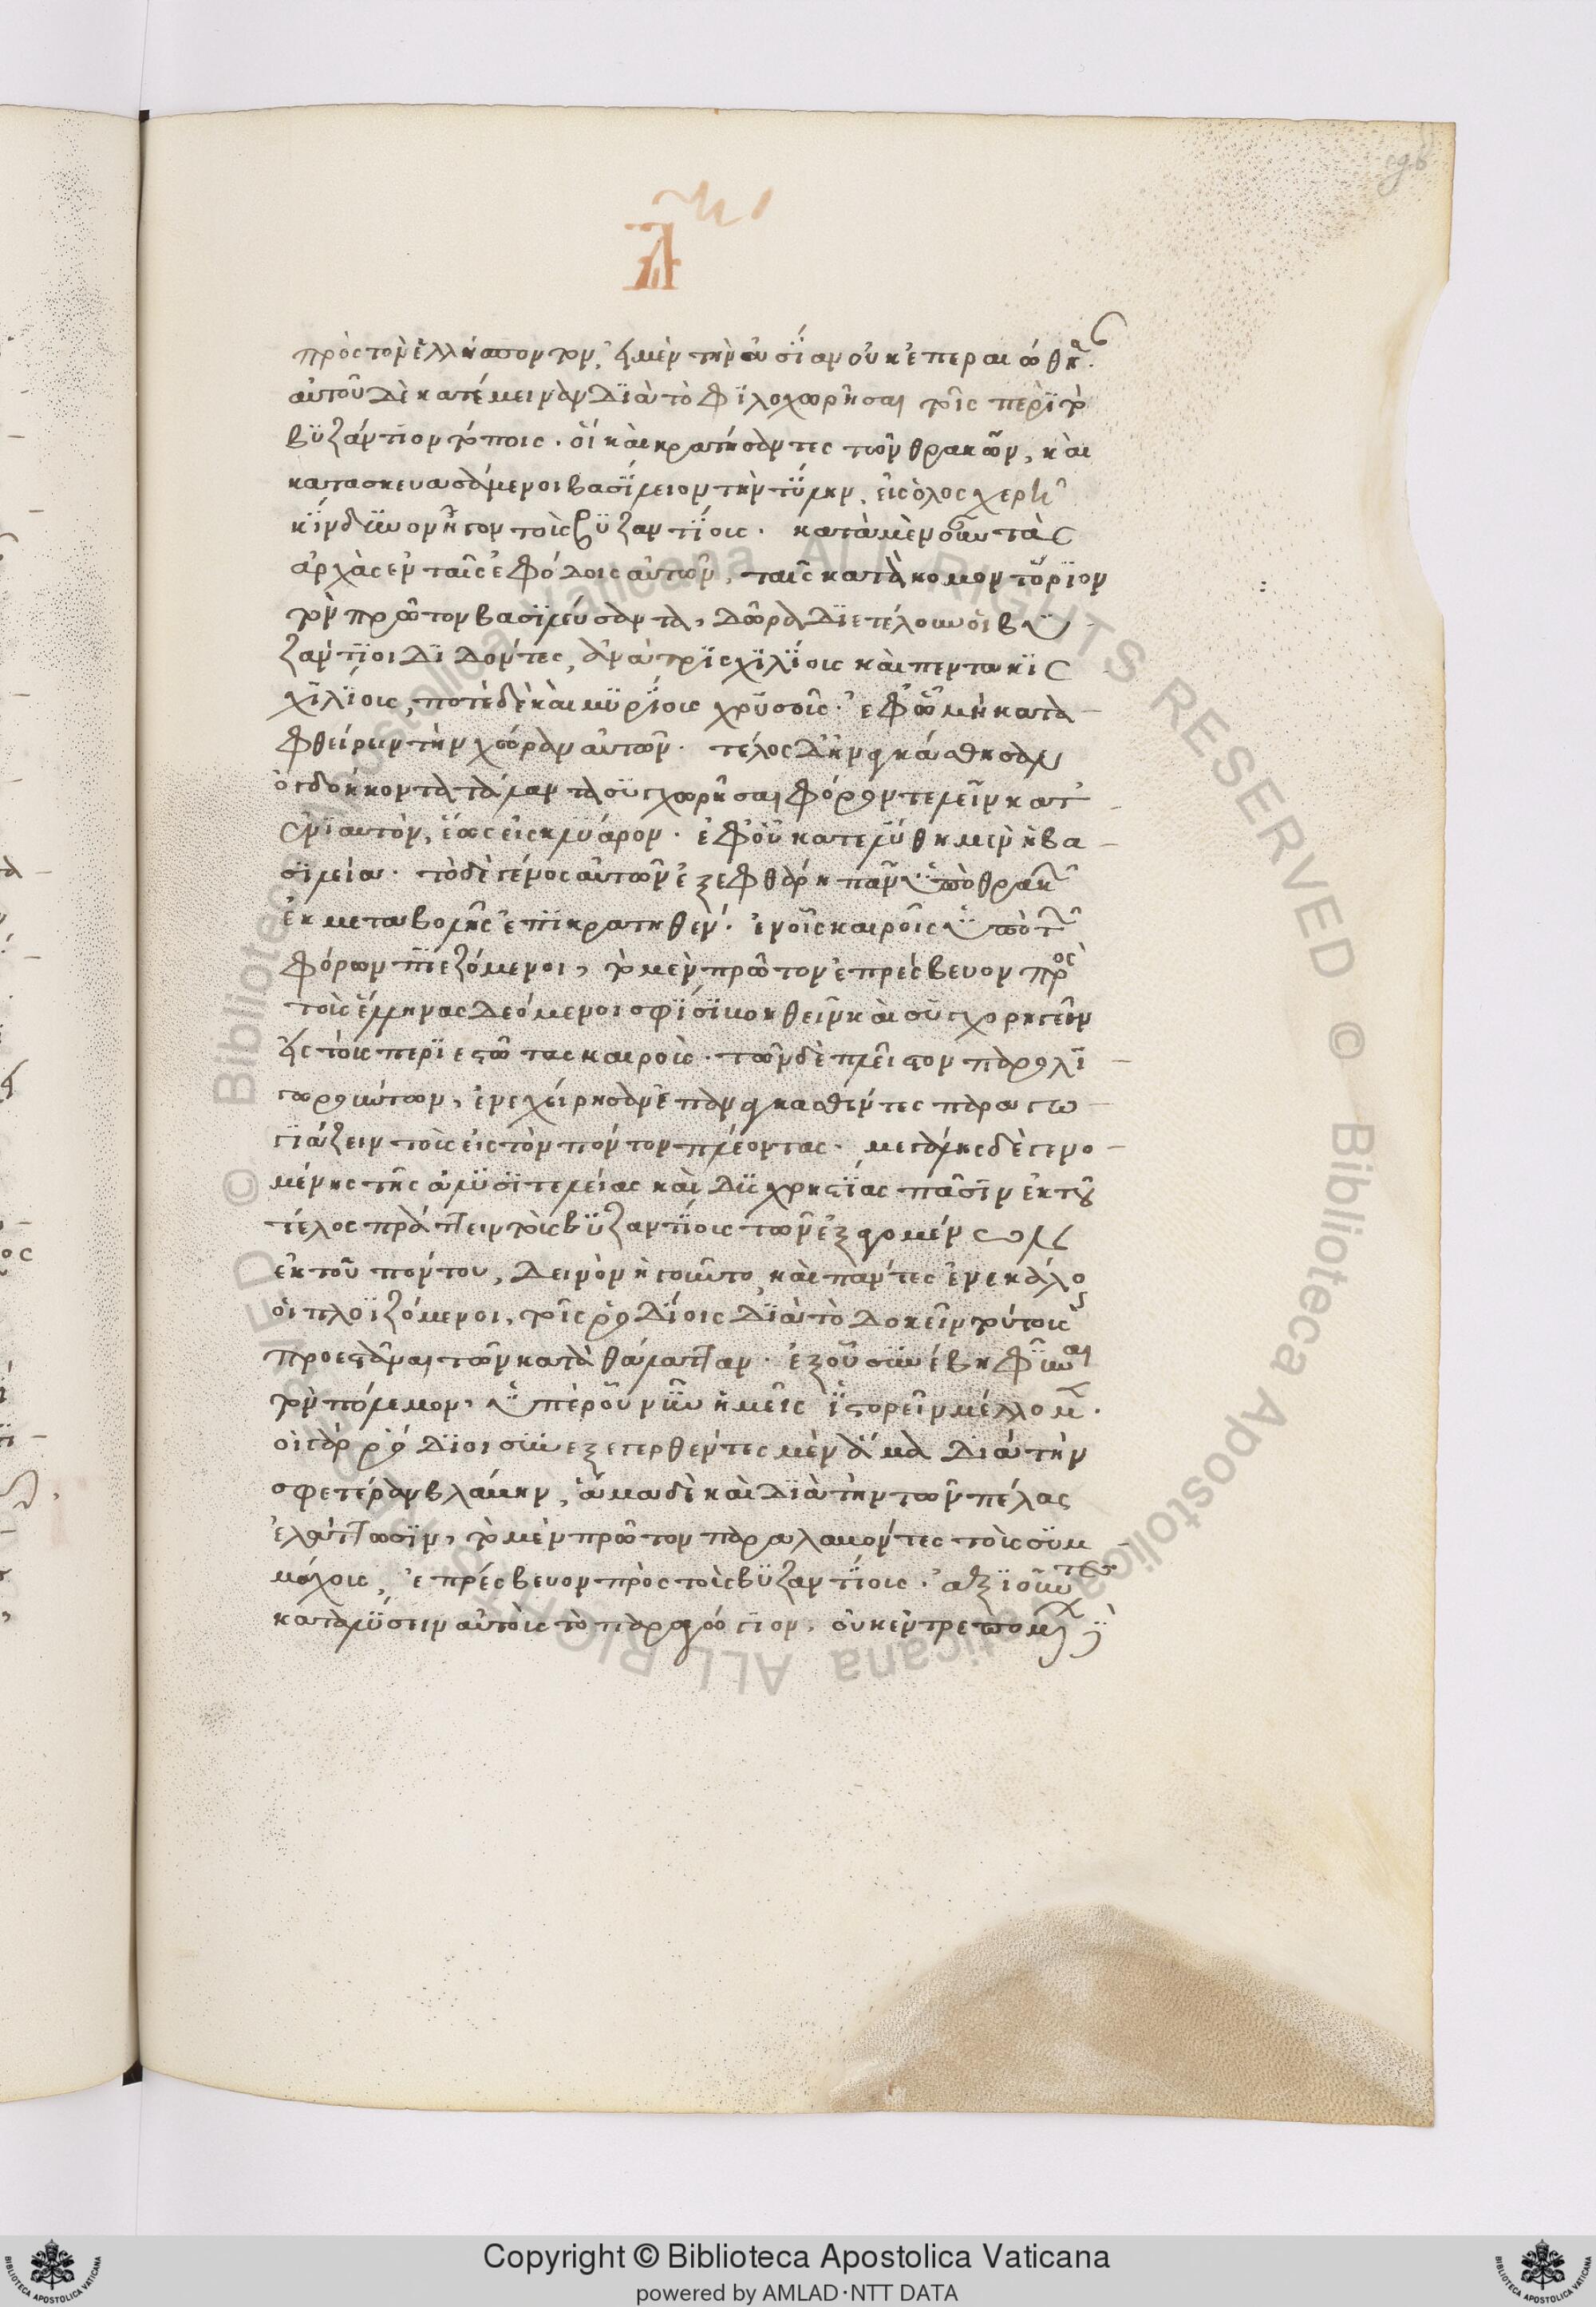 πρὸς τὸν ἑλλήσποντον, εἰς μὲν τὴν ἀσίαν οὐκ ἐπεραιώθησαν·
αὐτοῦ δὲ κατέμειναν διὰ τὸ φιλοχωρῆσαι τοῖς περὶ τὸ
βυζάντιον τόποις. οἳ καὶ κρατήσαντες τῶν θρακῶν, καὶ
κατασκευασάμενοι βασίλειον τὴν τύλην, εἰς ὁλοσχερῆ
κίνδυνον ἦγον τοὺς βυζαντίους. κατὰ μὲν οὖν τὰς
ἀρχὰς ἐν ταῖς ἐφόδοις αὐτῶν, ταῖς κατὰ κομοντόριον
τὸν πρῶτον βασιλεύσαντα, δῶρα διετέλουν οἱ βυ
ζάντιοι διδόντες, ἀνὰ τρισχιλίους καὶ πεντακις
χιλίους, ποτὲ δὲ καὶ μυρίους χρυσοῦς· ἐφ ᾧ μὴ κατα
φθείρειν τὴν χώραν αὐτῶν. τέλος δ' ἠναγκάσθησαν
ὀγδοήκοντα τάλαντα συγχωρῆσαι φόρον τελεῖν κατ
ἐνιαυτὸν, ἕως εἰς καύαρον. ἐφ οὗ κατελύθη μὲν ἡ βα
σιλεία. τὸ δὲ γένος αὐτῶν ἐξεφθάρη πᾶν ὑπὸ θρακῶν
ἐκ μεταβολῆς ἐπικρατηθέν. ἐν οἷς καιροῖς ὑπὸ τῶν
φόρων πιεζόμενοι, τὸ μὲν πρῶτον ἐπρέσβευον πρὸς
τοὺς ἕλληνας δεόμενοι σφίσι βοηθεῖν καὶ συγχορηγεῖν
εἰς τοὺς περιεστῶτας καιρούς. τῶν δὲ πλείστων παρολι
γωρούντων, ἐνεχείρησαν ἐπαναγκασθέντες παραγω
γιάζειν τοὺς εἰς τὸν πόντον πλέοντας. μεγάλης δὲ γενο
μένης τῆς ἀλυσιτελείας καὶ δυσχρηστίας πᾶσιν ἐκ τοῦ
τέλος πράττειν τοὺς βυζαντίους τῶν ἐξαγομένων
ἐκ τοῦ πόντου, δεινὸν ἡγοῦντο, καὶ πάντες ἐνεκάλουν
οἱ πλοϊζόμενοι, τοῖς ῥοδίοις διὰ τὸ δοκεῖν τούτους
προεστάναι τῶν κατὰ θάλατταν. ἐξ οὗ συνέβη φῦναι
τὸν πόλεμον, ὑπὲρ οὗ νῦν ἡμεῖς ἱστορεῖν μέλλομεν.
οἱ γὰρ ῥόδιοι συνεξεγερθέντες μὲν ἅμα διὰ τὴν
σφετέραν βλάβην, ἅμα δὲ καὶ διὰ τὴν τῶν πέλας
ἐλάττωσιν, τὸ μὲν πρῶτον παραλαβόντες τοὺς συμ
μάχους, ἐπρέσβευον πρὸς τοὺς βυζαντίους· ἀξιοῦντες
καταλύσειν αὐτοὺς τὸ παραγώγιον. οὐκ ἐντρεπομένων